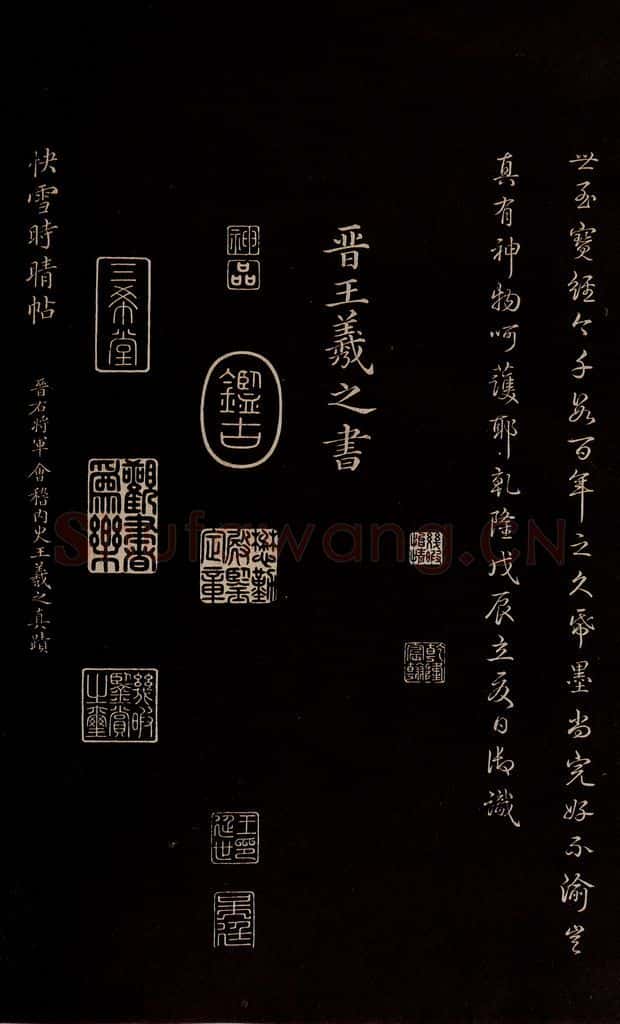 世至寶經今千數百年之久帋墨尚完好不渝豈
真有神物呵護耶乾隆戊辰立夏日御識
乾隆宸翰
晋王羲之書
神品
鑑古
懋勤殿鑒定章
王延世印
吳廷
三希堂
觀書為樂
幾暇鑒賞之璽
快雪時晴帖
晉右將軍會稽內史王羲之真蹟
Shufawang.CN